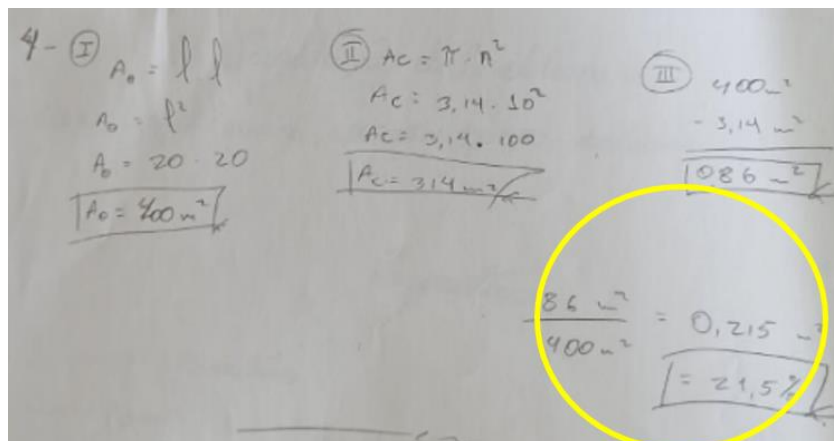 4 - I
A₀ = l l
A₀ = l²
A₀ = 20 · 20
A₀ = 400 m²
II Ac = π · r²
Ac = 3,14 · 10²
Ac = 3,14 · 100
Ac = 314 m²
III 400 m²
- 3,14 m²
086 m²
86 m² / 400 m² = 0,215 m²
= 21,5%